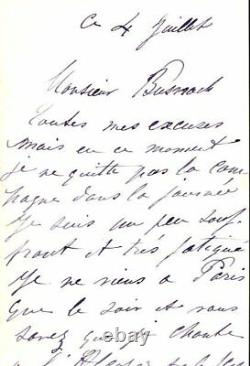 Ce 4 Juillet
Monsieur Busnach
Toutes mes excuses
mais en ce moment
je ne quitte pas la cam
pagne dans la journée
Je suis un peu souf
frant et très fatigué
Je ne viens à Paris
que le soir et vous
savez que je chante
à l'Alcazar
© wabidi.com